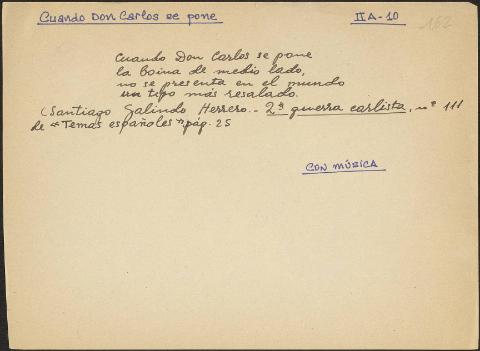 Cuando Don Carlos se pone
IIA-10
162
Cuando Don Carlos se pone
la boina de medio lado,
no se presenta en el mundo
un tipo más resalado.
(Santiago Galindo Herrero.- 2ª guerra carlista, nº 111
de "Temas españoles" pág. 25
CON MÚSICA